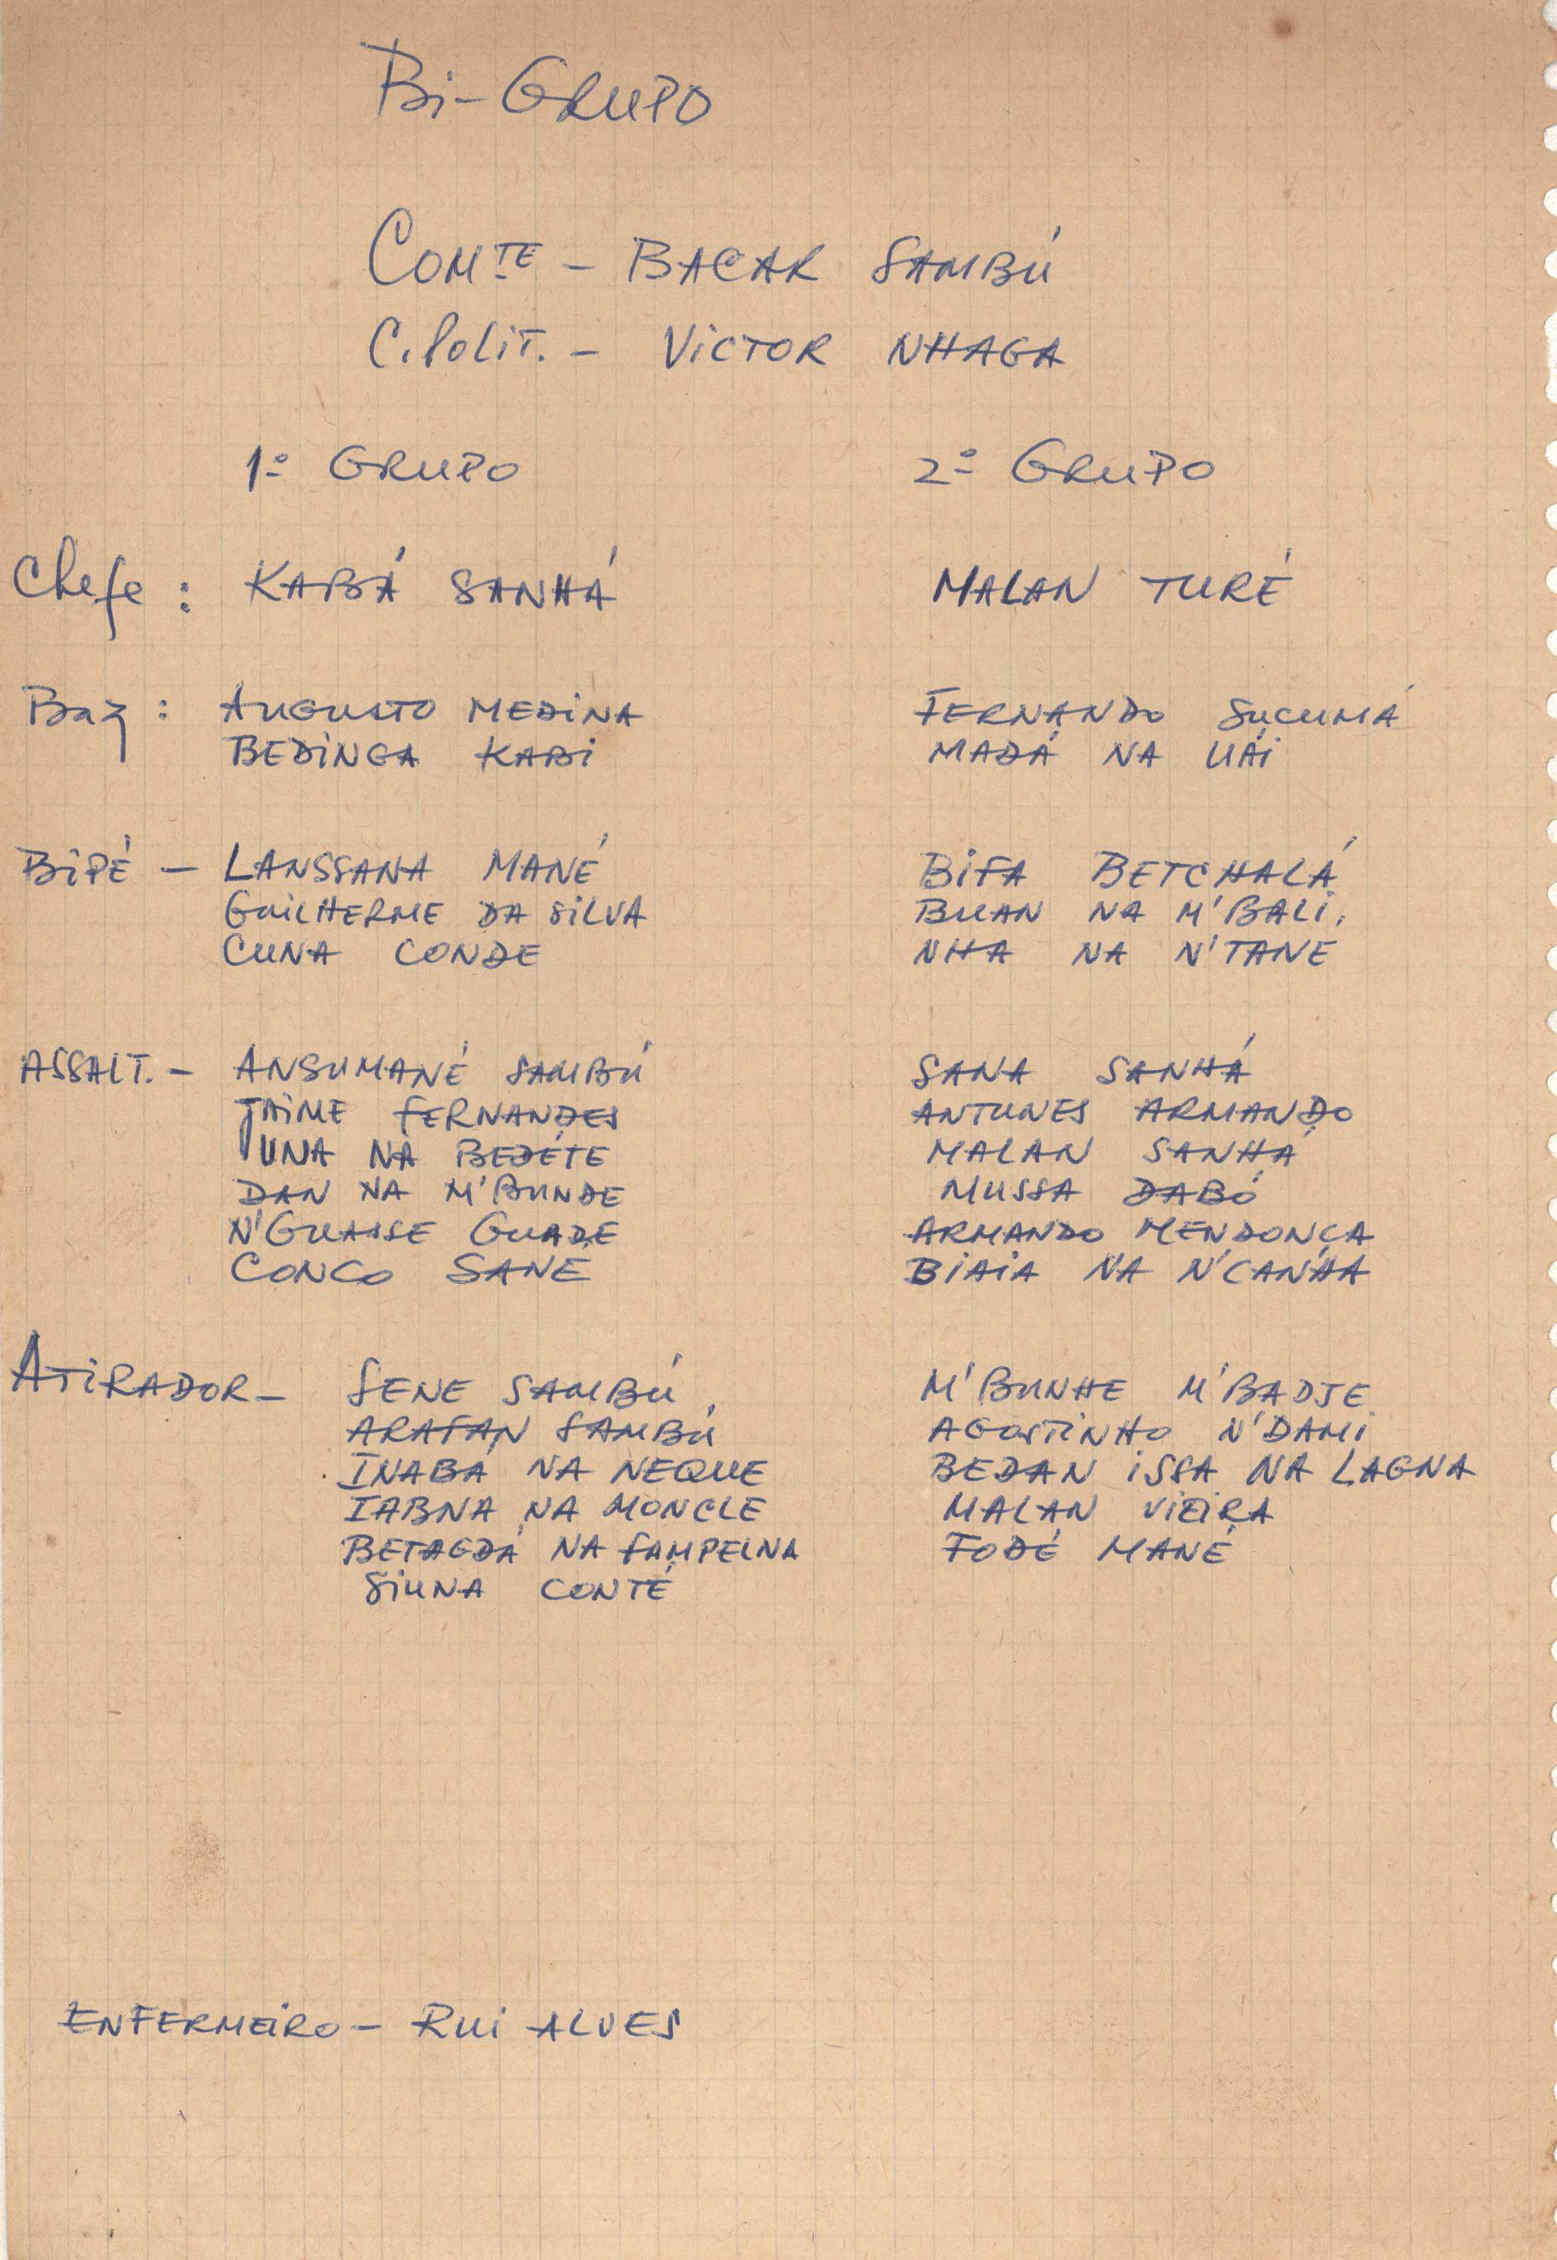 Bi-GRUPO
COMTE - BACAR SAMBÚ
C. Polit. - VICTOR NHAGA
1º GRUPO 2º GRUPO
Chefe : KABÁ SANHÁ MALAN TURÉ
Baz : AUGUSTO MEDINA FERNANDO SUCUMÁ
BEDINGA KABI MADÁ NA UÁI
BIPÉ - LANSSANA MANÉ BIFA BETCHALÁ
GUILHERME DA SILVA BUAN NA M'BALI.
CUNA CONDE NHA NA N'TANE
ASSALT. - ANSUMANÉ SAMBÚ SANA SANHÁ
JAIME FERNANDES ANTUNES ARMANDO
UNA NA BEDÉTE MALAN SANHÁ
DAN NA M'BUNDE MUSSA DABÓ
N'GUASSE GUADE ARMANDO MENDONÇA
CONCO SANÉ BIAIA NA N'CANHA
ATIRADOR - SENE SAMBÚ M'BUNHE M'BADJE
ARAFAN SAMBÚ AGOSTINHO N'DAMI
INABÁ NA NEQUE BEDAN ISSA NA LAGNA
IABNA NA MONCLE MALAN VIEIRA
BETAGDÁ NA FAMPELNA FODÉ MANÉ
SIUNA CONTÉ
ENFERMEIRO - RUI ALVES